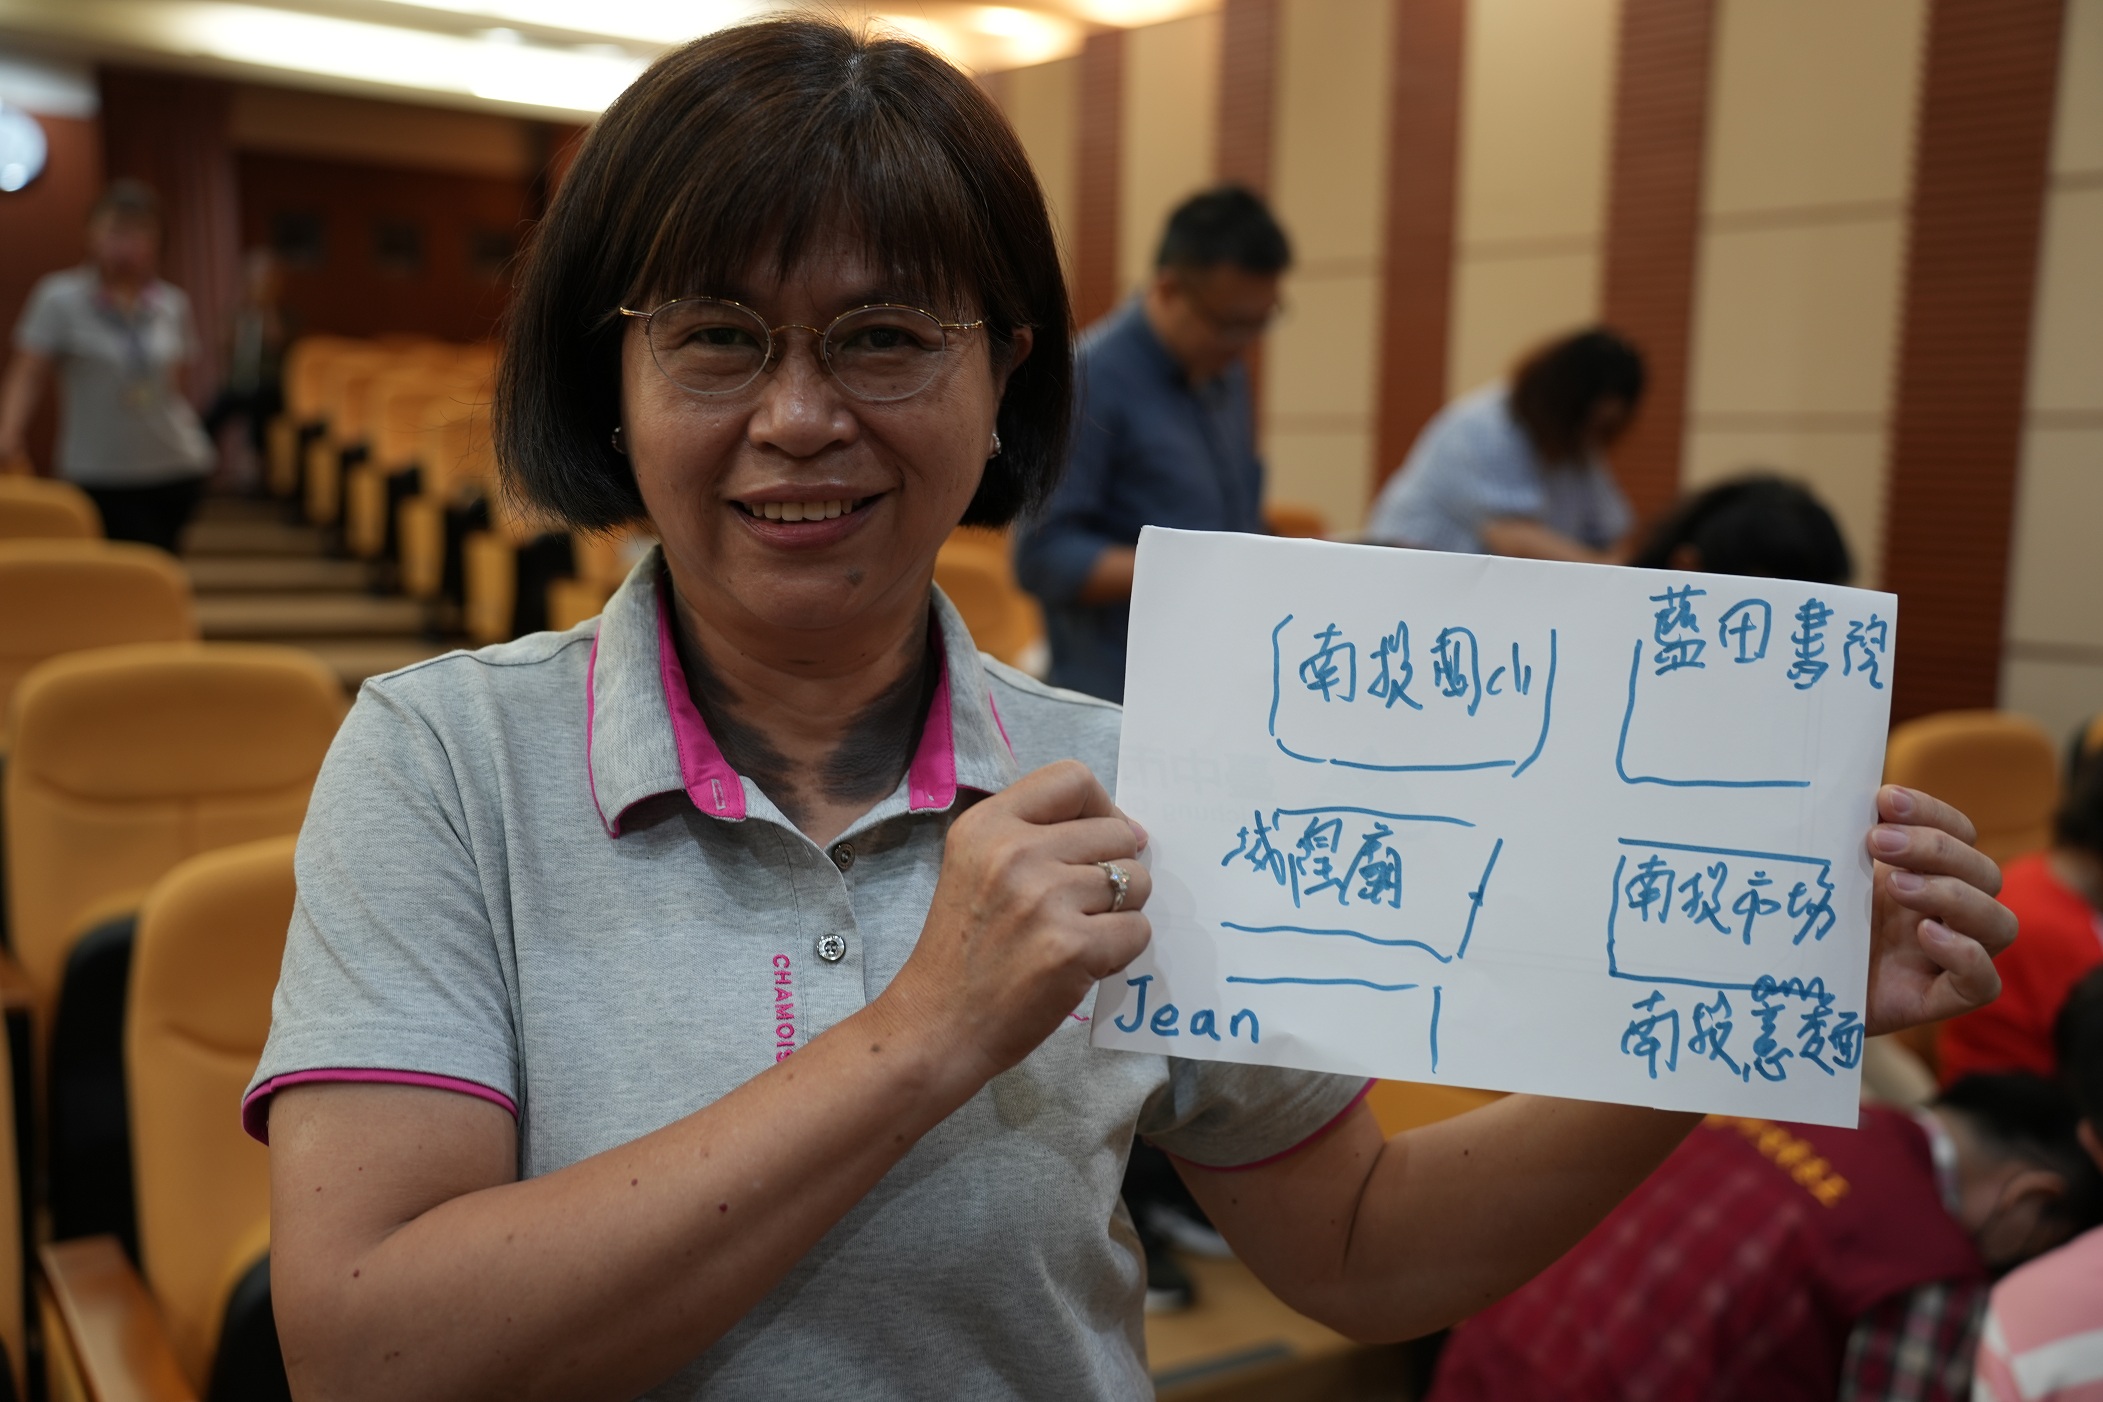 南投國小
藍田書院
城隍廟
南投市場
Jean
南投意麵
CHAMOIS